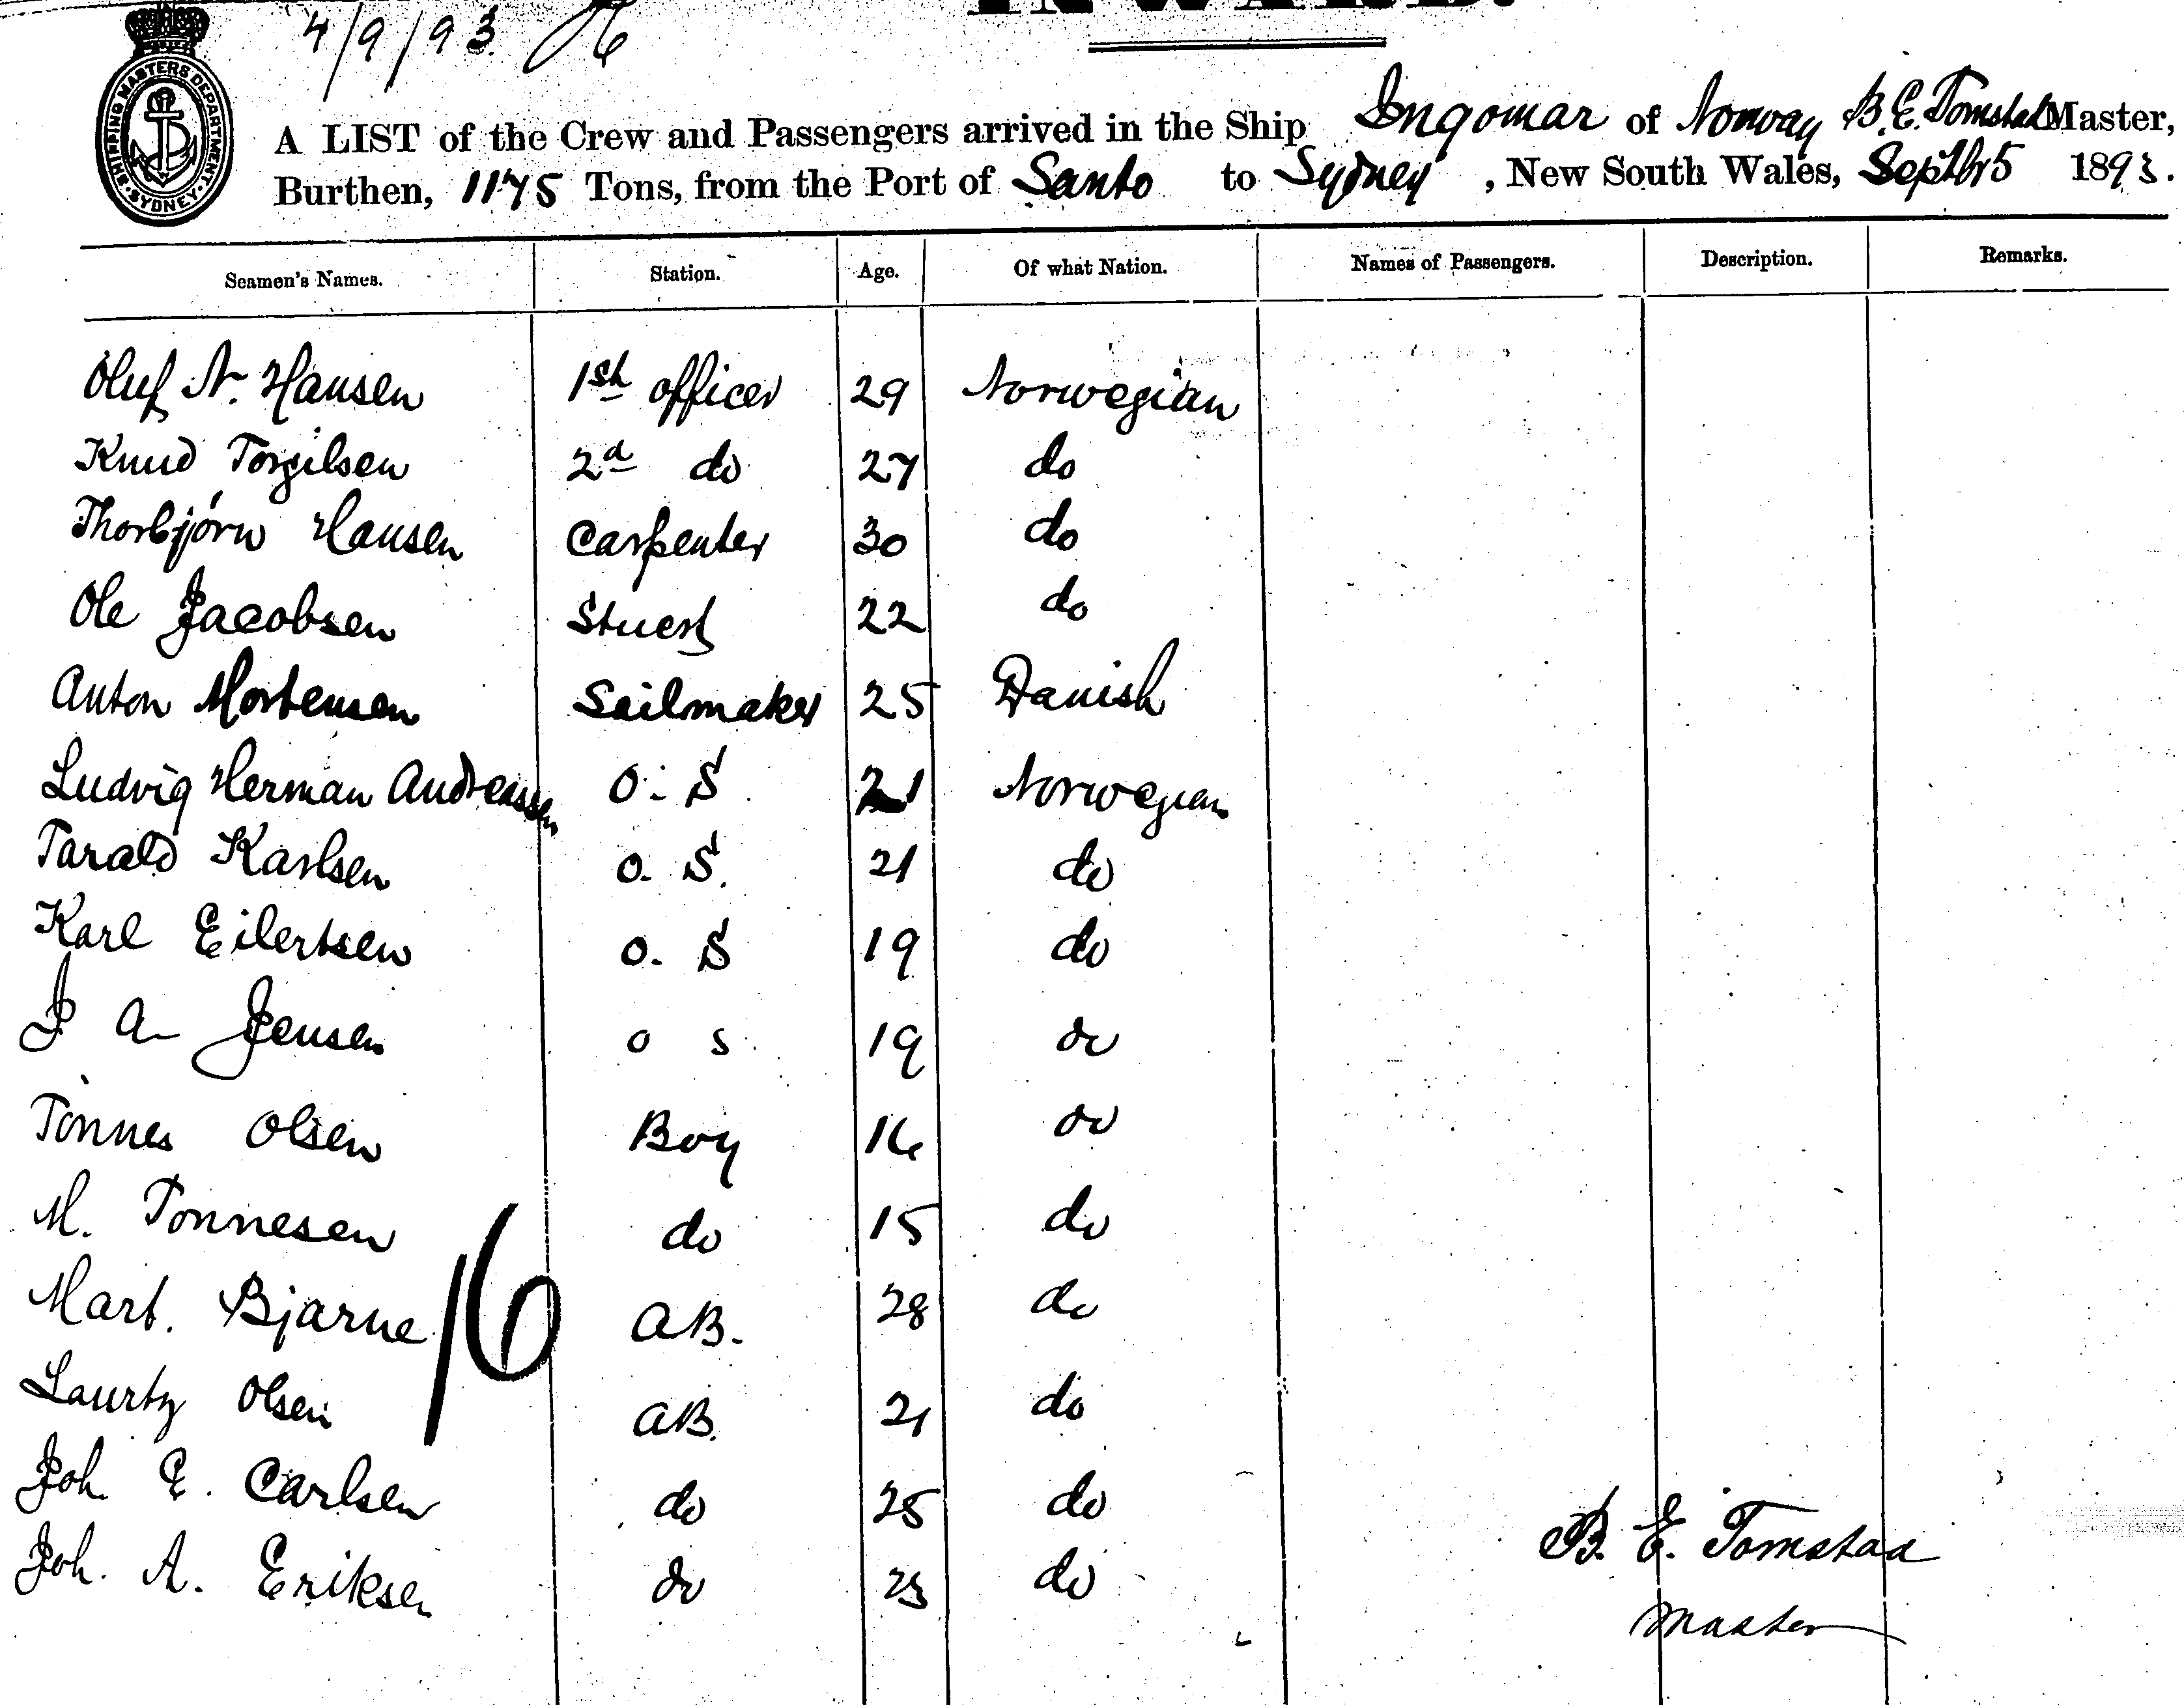 4/9/93
INWARD.
SHIPPING MASTERS DEPARTMENT. SYDNEY.
A LIST of the Crew and Passengers arrived in the Ship Ingomar of Norway B.E. Tomstad Master,
Burthen, 1175 Tons, from the Port of Santo to Sydney, New South Wales, Septbr 5 1893.
Seamen's Names. Station. Age. Of what Nation. Names of Passengers. Description. Remarks.
Oluf N. Hansen 1st officer 29 Norwegian
Knud Torgilsen 2d do 27 do
Thorbjörn Hansen Carpenter 30 do
Ole Jacobsen Stuert 22 do
Anton Mortensen Sailmaker 25 Danish
Ludvig Herman Andreassen O. S 21 Norwegian
Tarald Karlsen O. S. 21 do
Karl Eilertsen O. S 19 do
J A Jensen O S 19 do
Tönnes Olsen Boy 16 do
M. Tonnesen do 15 do
Mart. Bjarne AB. 28 do
16
Laurtz Olsen AB. 21 do
Joh. E. Carlsen do 25 do
Joh. A. Eriksen do 23 do
B. E. Tomstad
Master